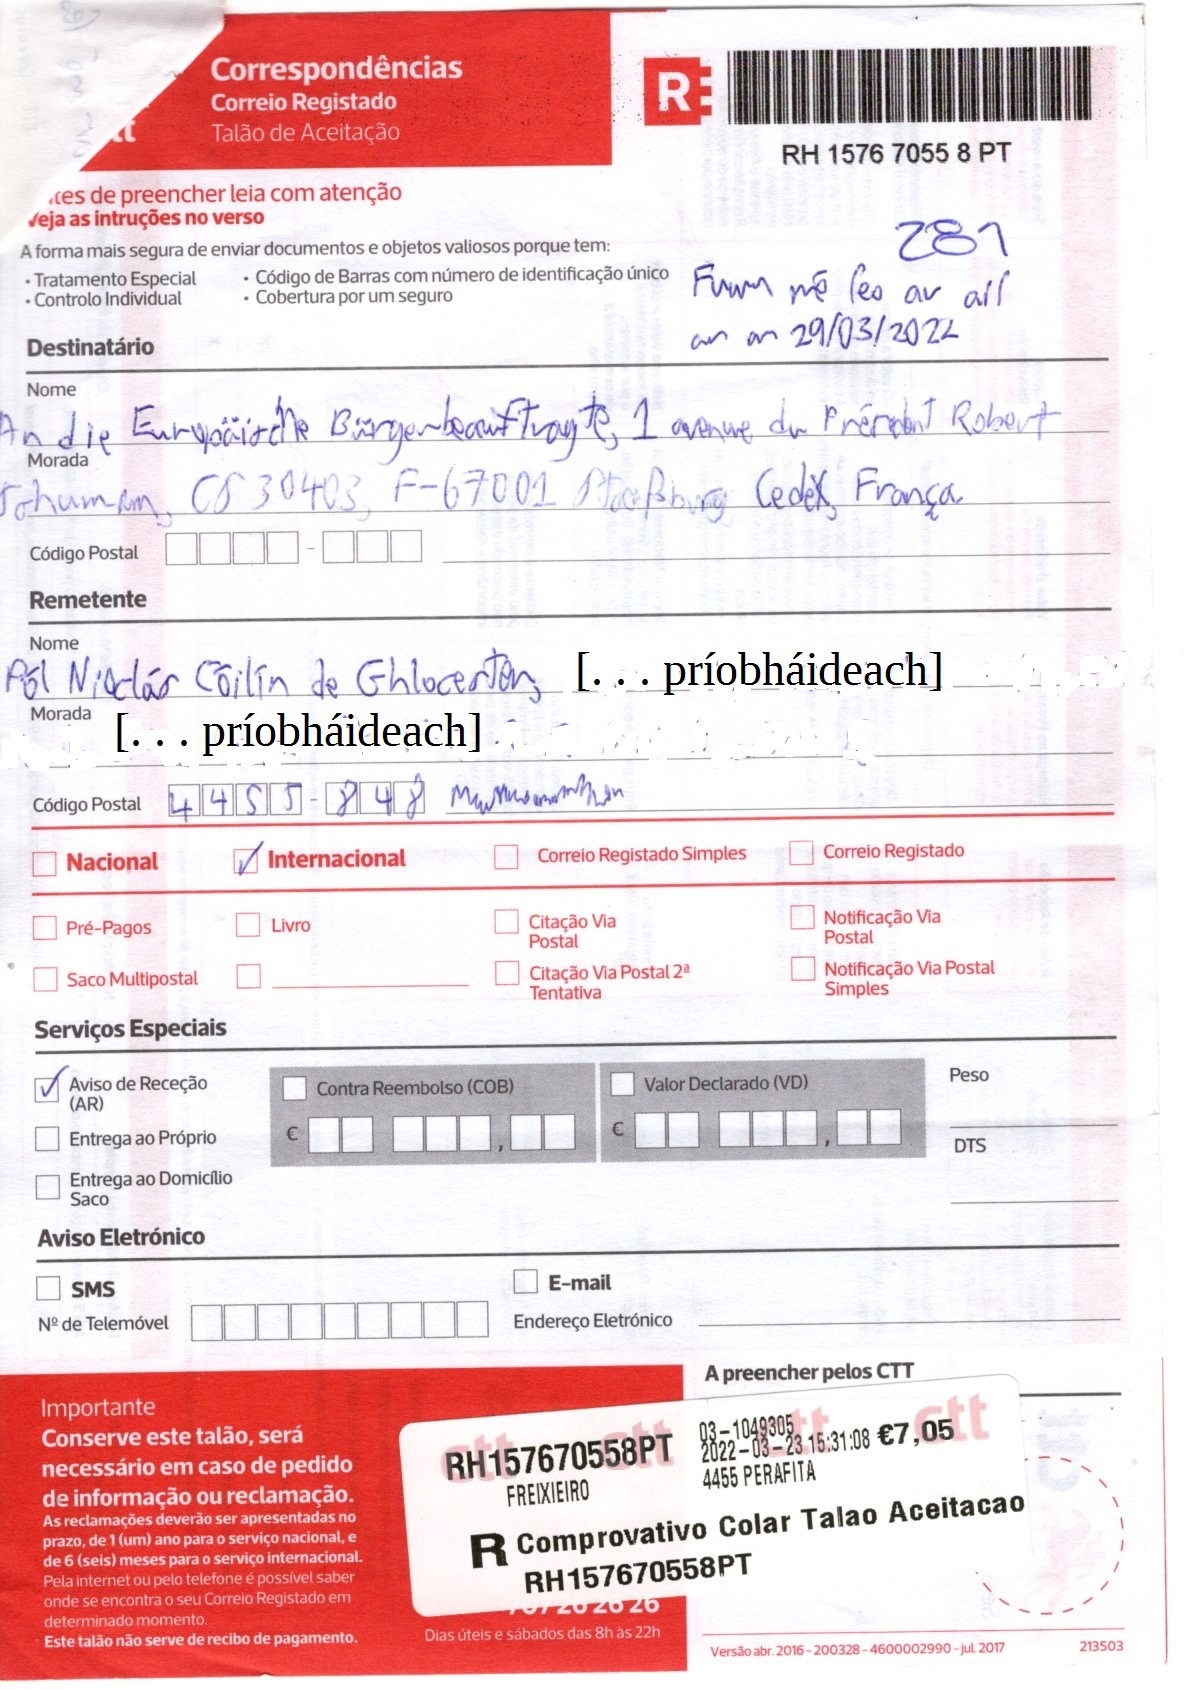 Correspondências
Correio Registado
Talão de Aceitação
tt
R
RH 1576 7055 8 PT
tes de preencher leia com atenção
Veja as intruções no verso
A forma mais segura de enviar documentos e objetos valiosos porque tem:
• Tratamento Especial • Código de Barras com número de identificação único
• Controlo Individual • Cobertura por um seguro
281
Fuair mé leo ar ais
ar an 29/03/2022
Destinatário
Nome
An die Europäische Bürgerbeauftragte, 1 avenue du Président Robert
Morada
Schuman, CS 30403, F-67001 Straßburg Cedex, França
Código Postal -
Remetente
Nome
Pól Nioclás Cóilín de Ghlocerton, [. . . príobháideach]
Morada
[. . . príobháideach]
Código Postal 4455-848
Nacional Internacional Correio Registado Simples Correio Registado
Pré-Pagos Livro Citação Via Postal Notificação Via Postal
Saco Multipostal Citação Via Postal 2ª Tentativa Notificação Via Postal Simples
Serviços Especiais
Aviso de Receção (AR) Contra Reembolso (COB) Valor Declarado (VD) Peso
Entrega ao Próprio € , € , DTS
Entrega ao Domicílio
Saco
Aviso Eletrónico
SMS E-mail
Nº de Telemóvel Endereço Eletrónico
A preencher pelos CTT
Importante
Conserve este talão, será
necessário em caso de pedido
de informação ou reclamação.
As reclamações deverão ser apresentadas no
prazo, de 1 (um) ano para o serviço nacional, e
de 6 (seis) meses para o serviço internacional.
Pela internet ou pelo telefone é possível saber
onde se encontra o seu Correio Registado em
determinado momento.
Este talão não serve de recibo de pagamento.
ctt ctt ctt ctt
RH157670558PT 03-1049305
2022-03-23 15:31:08 €7,05
FREIXIEIRO 4455 PERAFITA
R Comprovativo Colar Talao Aceitacao
RH157670558PT
707 26 26 26
Dias úteis e sábados das 8h às 22h
Versão abr. 2016 - 200328 - 4600002990 - jul. 2017 213503